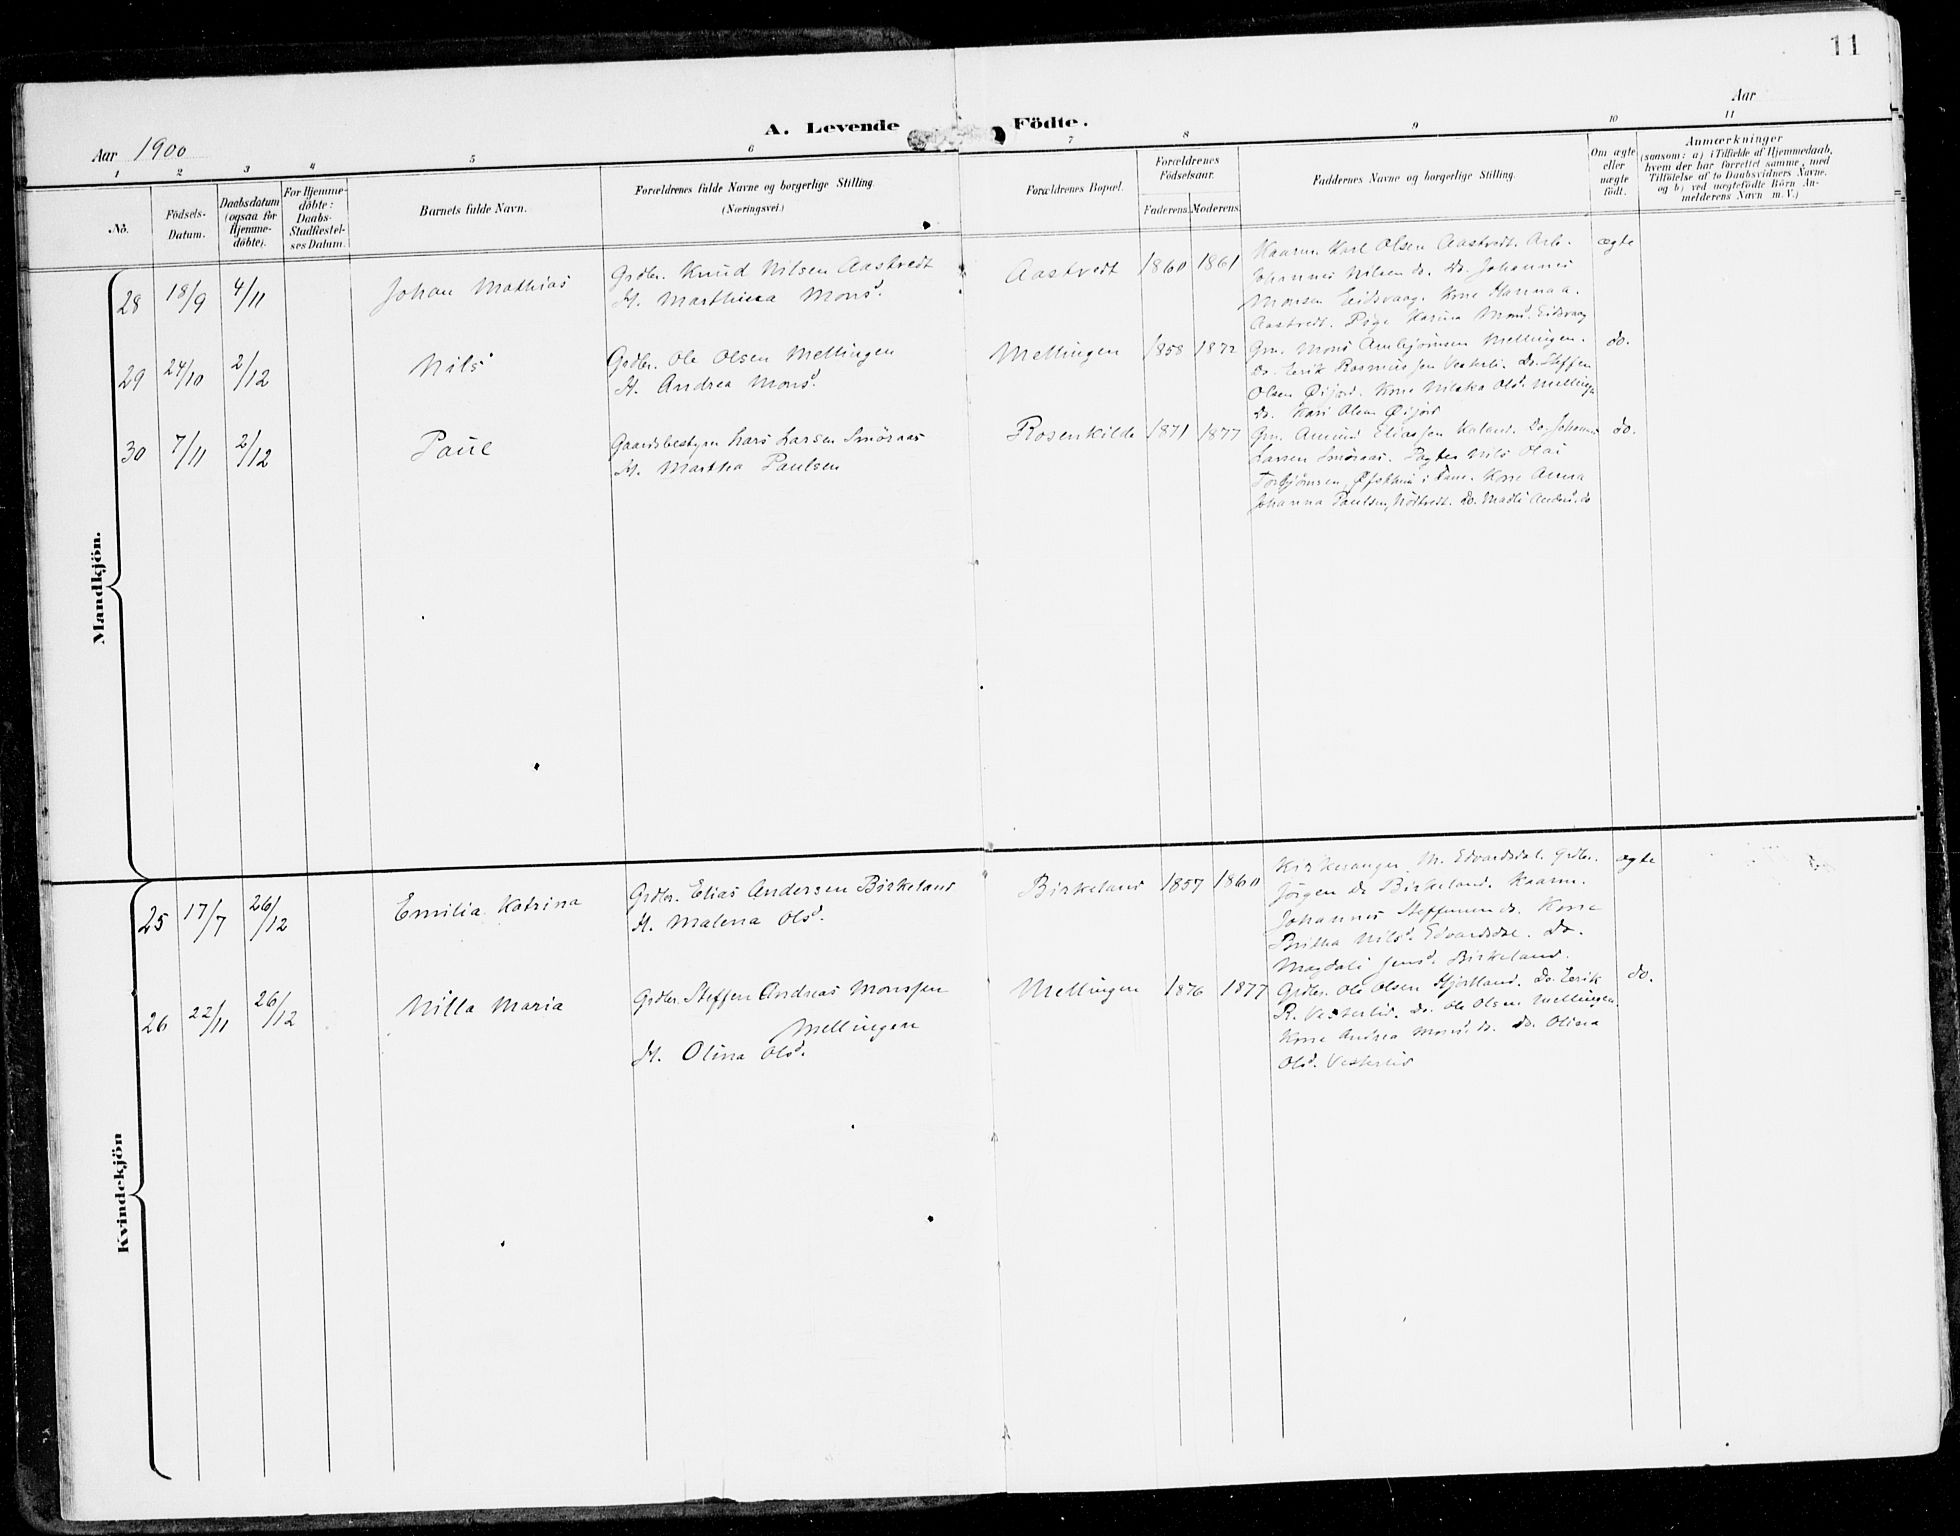 11
Aar 1900
A. Levende Födte.
Aar
1 2 3 4 5 6 7 8 9 10 11
No.
Födsels-Datum.
Daabsdatum (ogsaa for Hjemme-döbte).
For Hjemme-döbte: Daabs-Stadfæstel-ses Datum.
Barnets fulde Navn.
Forældrenes fulde Navne og borgerlige Stilling
(Næringsvei.)
Forældrenes Bopæl.
Forældrenes Födselsaar.
Faderens. Moderens.
Faddernes Navne og borgerlige Stilling.
Om ægte eller uægte födt.
Anmærkninger
(saasom: a) i Tilfælde af Hjemmedaab,
hvem der har forrettet samme, med
Tilföielse af to Daabsvidners Navne.
og b) ved uægtefödte Börn An-
melderens Navn m. V.)
Mandkjön.
28 18/9 4/11 Johan Mathias
Grdbr. Knud Nilsen Aastvedt
H. Marthina Monsd.
Aastvedt 1860 1861
Kaarm. Karl Olsen Aastvedt. Arb.
Johannes Nilsen do. do. Johannes
Monsen Eidsvaag. Kone Hanna A.
Aastvedt. Pige Karina Monsd. Eidsvaag
ægte
29 24/10 2/12 Nils
Grdbr. Ole Olsen Mellingen
H. Andrea Monsd.
Mellingen 1858 1872
Grm. Mons Arnbjörnsen Mellingen.
do. Erik Rasmussen Vesterli. do. Steffen
Olsen Öijord. Kone Nilska Olsd. Mellingen
do. Kari Olsen Öijord
do.
30 7/11 2/12 Paul
Gaardsbestyrer Lars Larsen Smöraas
H. Martha Paulsen
Rosenkilde 1871 1877
Grm. Amund Eliassen Kaland. do. Johannes
Larsen Smöraas. Nils Olai
Torbjörnsen, i Fane. Kone Anna
Johanna Paulsen, Nöttvedt. do. Madli do
do.
Kvindekjön
25 17/7 26/12 Emilia Katrina
Grdbr. Elias Andersen Birkeland
H. Malena Olsd.
Birkeland 1857 1860
Kirkesanger M. Edvardsdal. Grdbr.
Jörgen do Birkeland. Kaarm.
Johannes Steffensen do. Kone
Britha Nilsd. Edvardsdal. do.
Magdali Jensd. Birkeland.
ægte
26 22/11 26/12 Milla Maria
Grdbr. Steffen Andreas Monssen
Mellingen
H. Olina Olsd.
Mellingen 1876 1877
Grdbr. Ole Olsen Hjortland. do. Erik
R. Vesterlid. do. Ole Olsen Mellingen.
Kone Andrea Monsd. do. do. Olina
Olsd. Vesterlid
do.